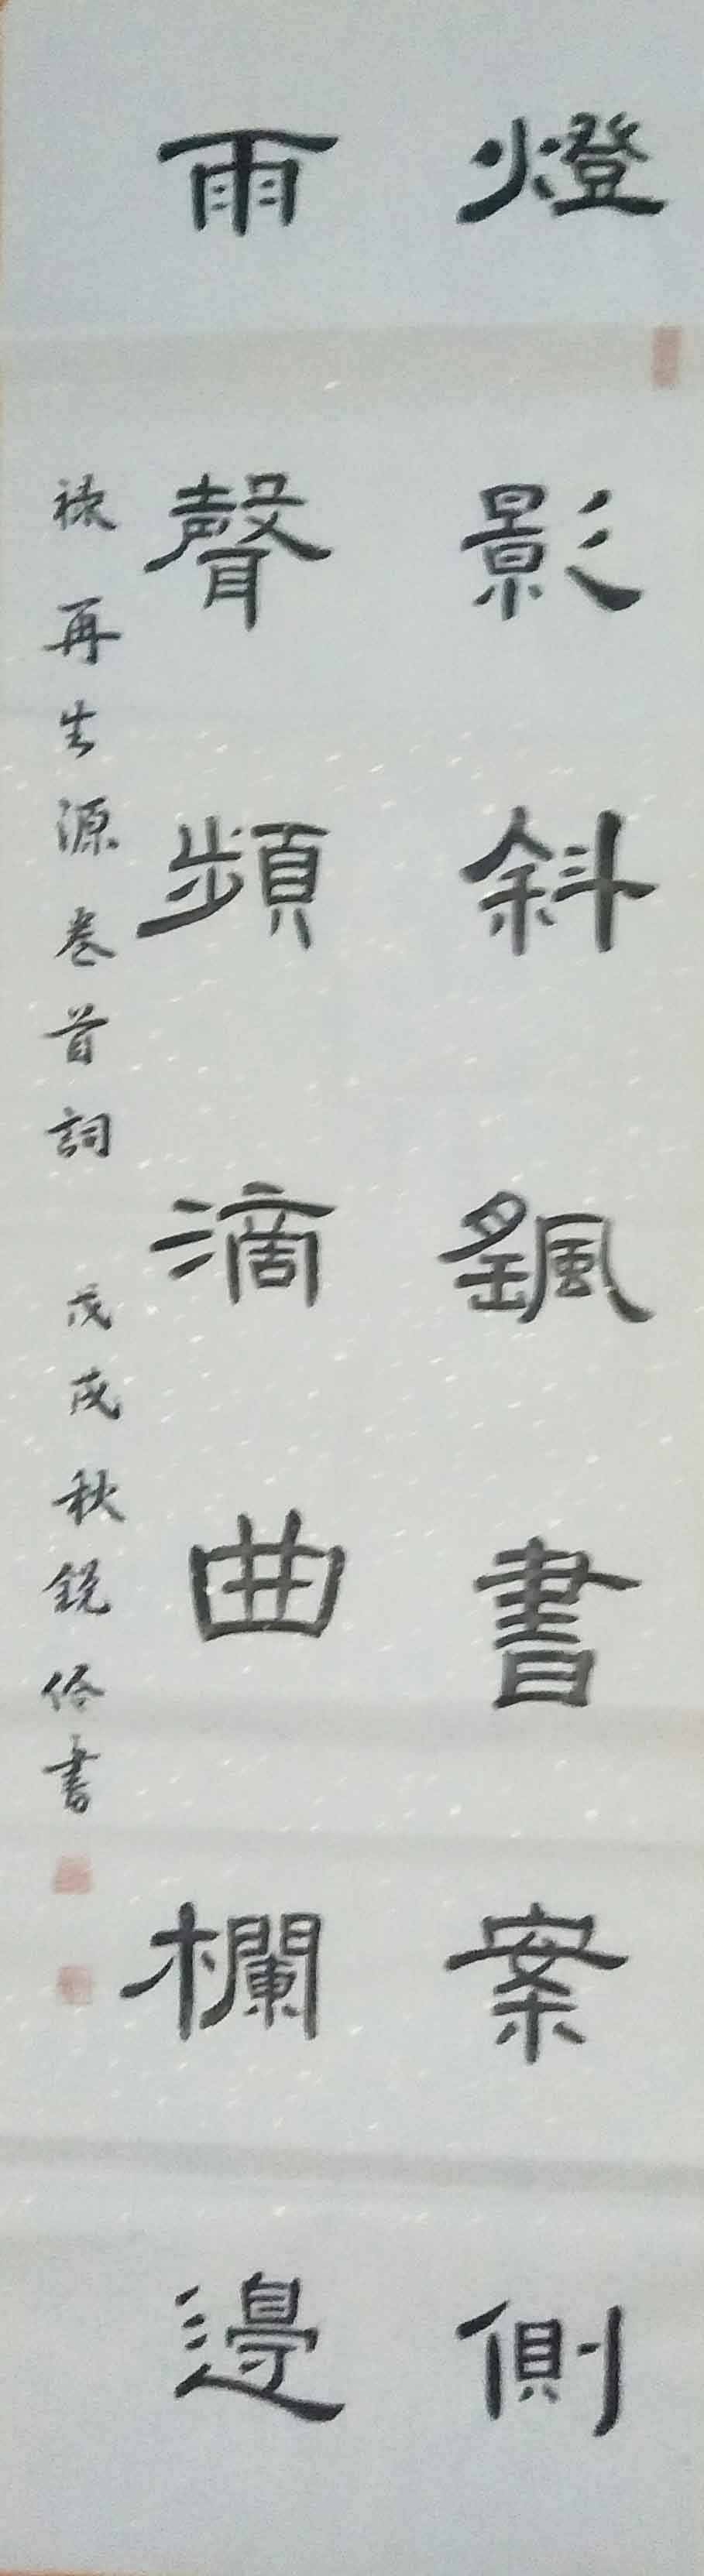 燈影斜颻書案側
雨聲頻滴曲欄邊
錄再生源卷首詞 戊戌秋銳佟書